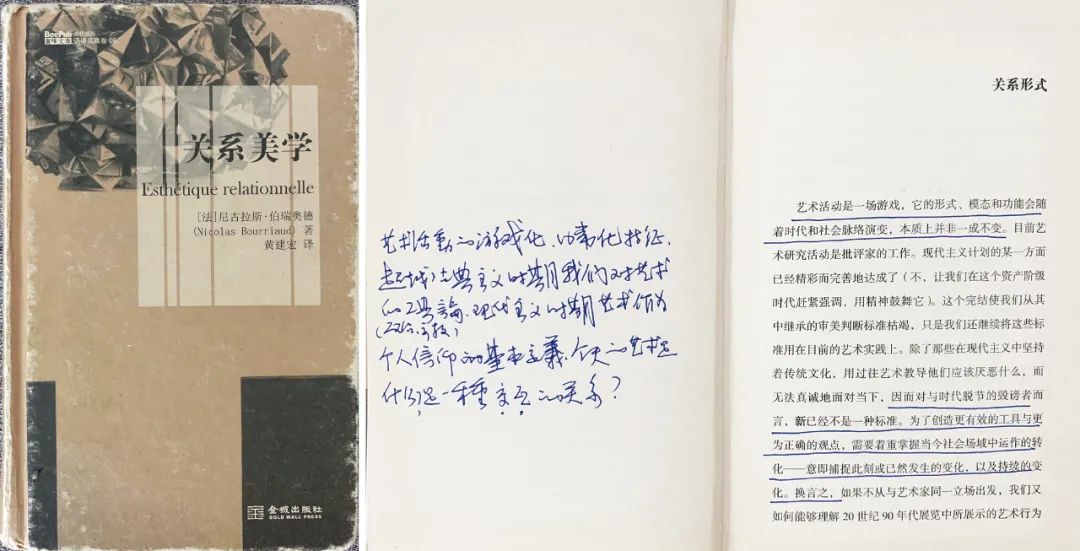 BeePub
关系美学
Esthétique relationnelle
[法]尼古拉斯·伯瑞奥德
(Nicolas Bourriaud) 著
黄建宏 译
金城出版社
GOLD WALL PRESS
艺术活動的游戏化、日常化特征、
超越了古典主义时期我们对艺术
的工具論、现代主义时期艺术作为
(政治、宗教)
个人信仰的基本定義、今天的艺术是
什么?是一種交互的关系?
关系形式
艺术活动是一场游戏,它的形式、模态和功能会随
着时代和社会脉络演变,本质上并非一成不变。目前艺
术研究活动是批评家的工作。现代主义计划的某一方面
已经精彩而完善地达成了(不,让我们在这个资产阶级
时代赶紧强调,用精神鼓舞它)。这个完结使我们从其
中继承的审美判断标准枯竭,只是我们还继续将这些标
准用在目前的艺术实践上。除了那些在现代主义中坚持
着传统文化,用过往艺术教导他们应该厌恶什么,而
无法真诚地面对当下,因而对与时代脱节的毁谤者而
言,新已经不是一种标准。为了创造更有效的工具与更
为正确的观点,需要着重掌握当今社会场域中运作的转
化——意即捕捉此刻或已然发生的变化,以及持续的变
化。换言之,如果不从与艺术家同一立场出发,我们又
如何能够理解 20 世纪 90 年代展览中所展示的艺术行为